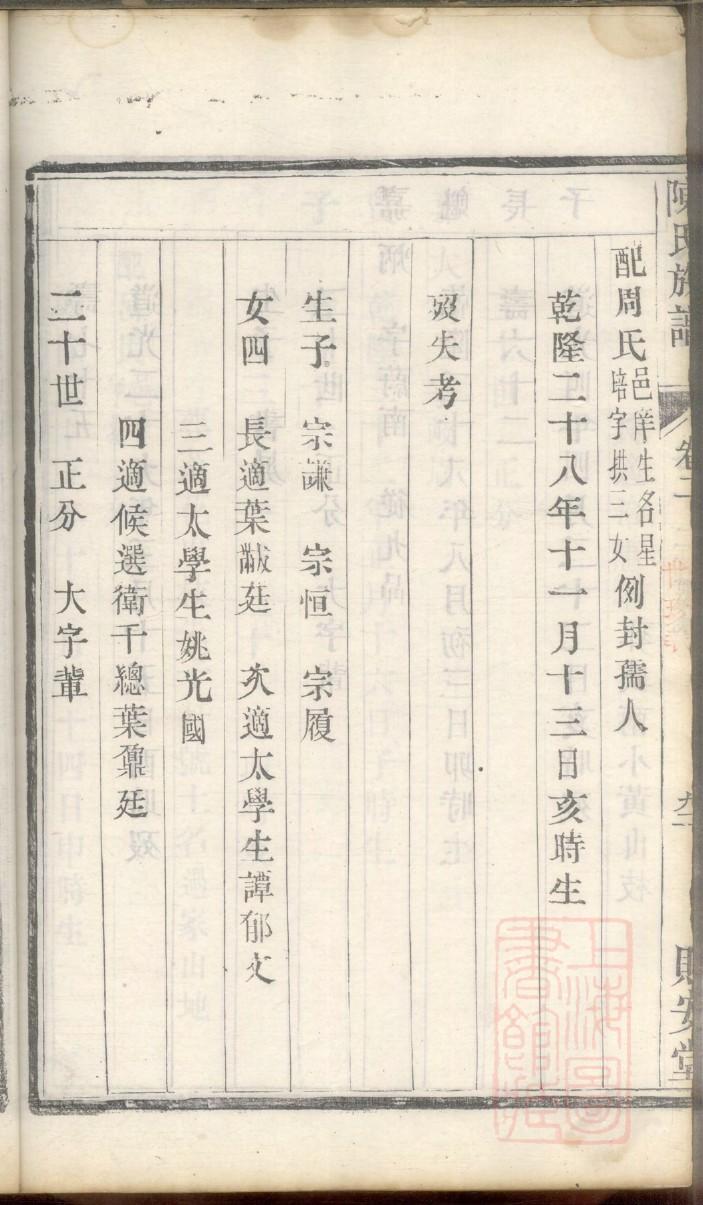 陳氏族譜
卷二
配周氏邑庠生名星培字拱三女例封孺人
乾隆二十八年十一月十三日亥時生
歿失考
生子 宗謙 宗恒 宗履
女四 長適葉黻廷 次適太學生譚郁文
三適太學生姚光國
四適候選衛千總葉鼐廷
二十世 正分 大字輩
上海圖書館藏